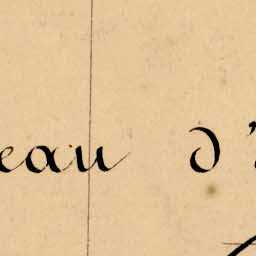 eau d'